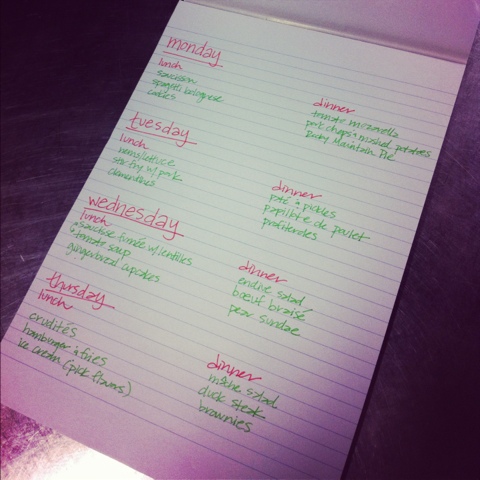 monday
lunch
saucisson
spaghetti bolognese
cookies
dinner
tomate mozarella
pork chops + mashed potatoes
Rocky Mountain Pie
tuesday
lunch
stir fry w/ pork
clementines
dinner
paté + pickles
papillote de poulet
profiteroles
wednesday
lunch
saucisse fumée w/ lentilles
tomato soup
gingerbread cupcakes
dinner
endive salad
boeuf braisé
pear sundae
thursday
lunch
crudités
hamburger + fries
ice cream (pick flavors)
dinner
mâche salad
duck steak
brownies